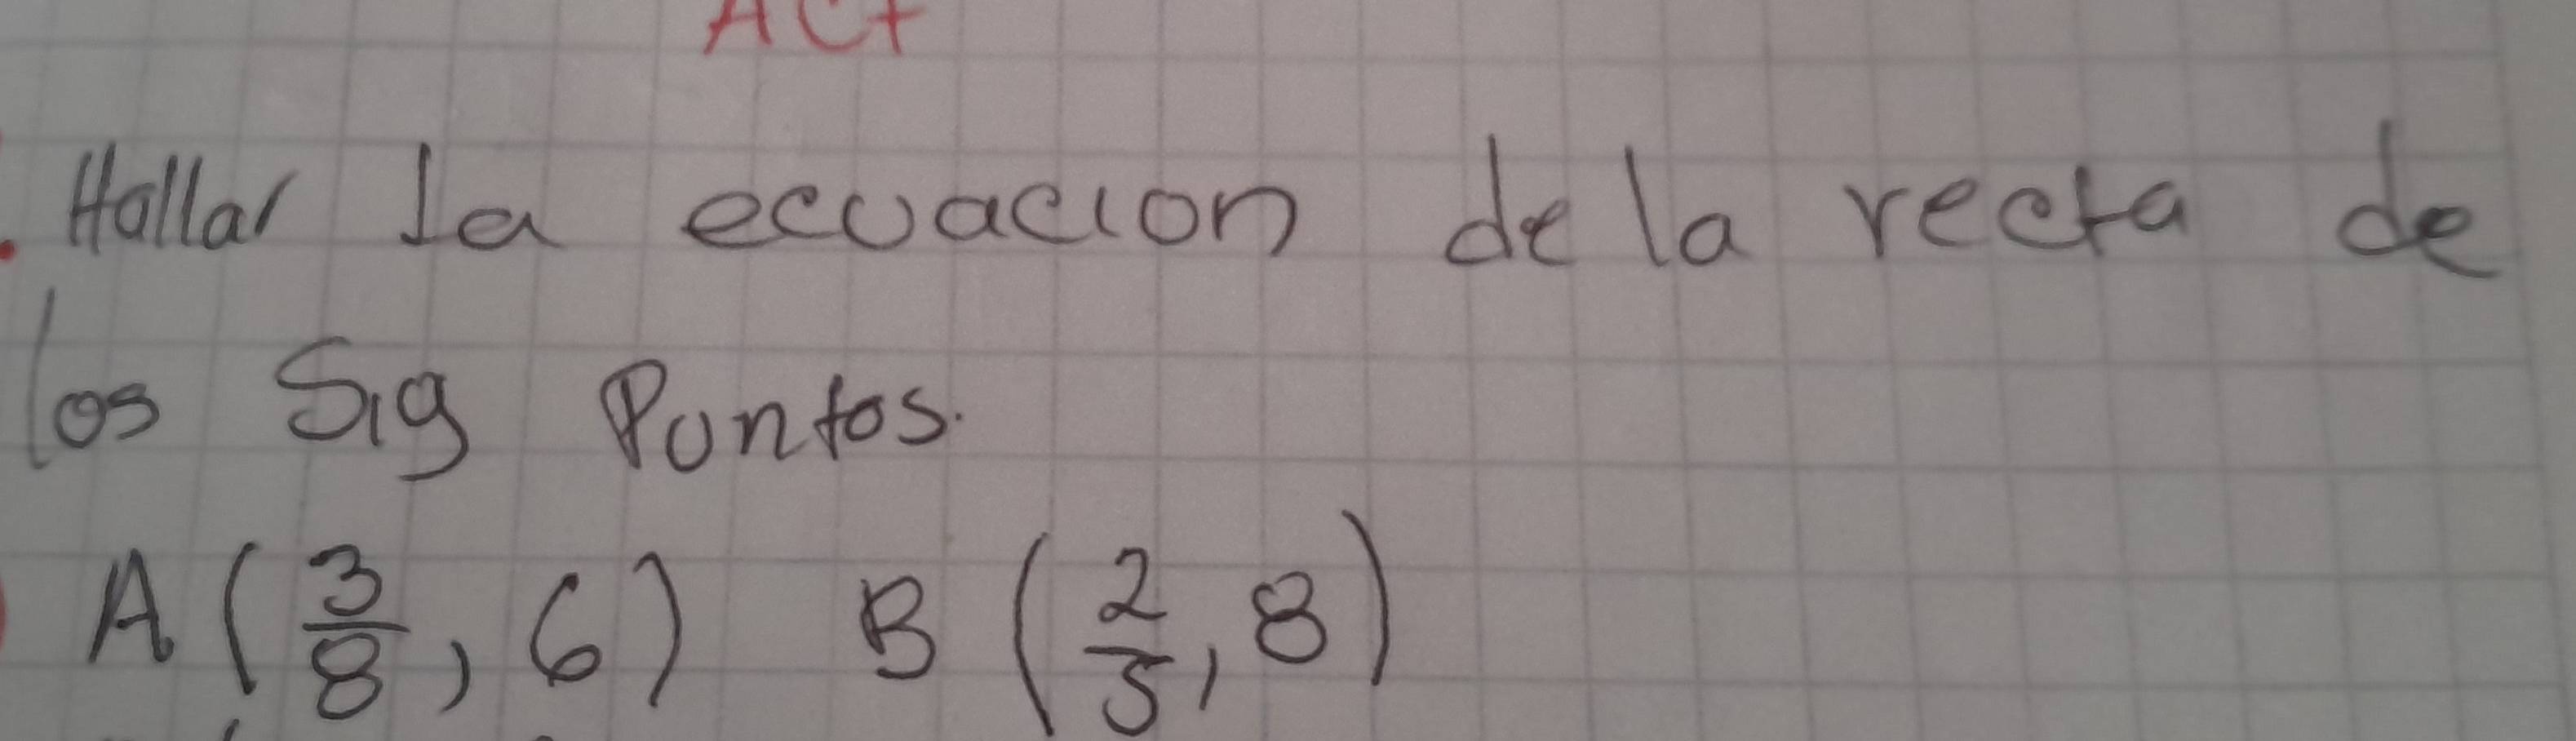 ACt
. Hallar la ecuacion de la recta de
los Sig Puntos.
A (3/8, 6) B (2/5, 8)